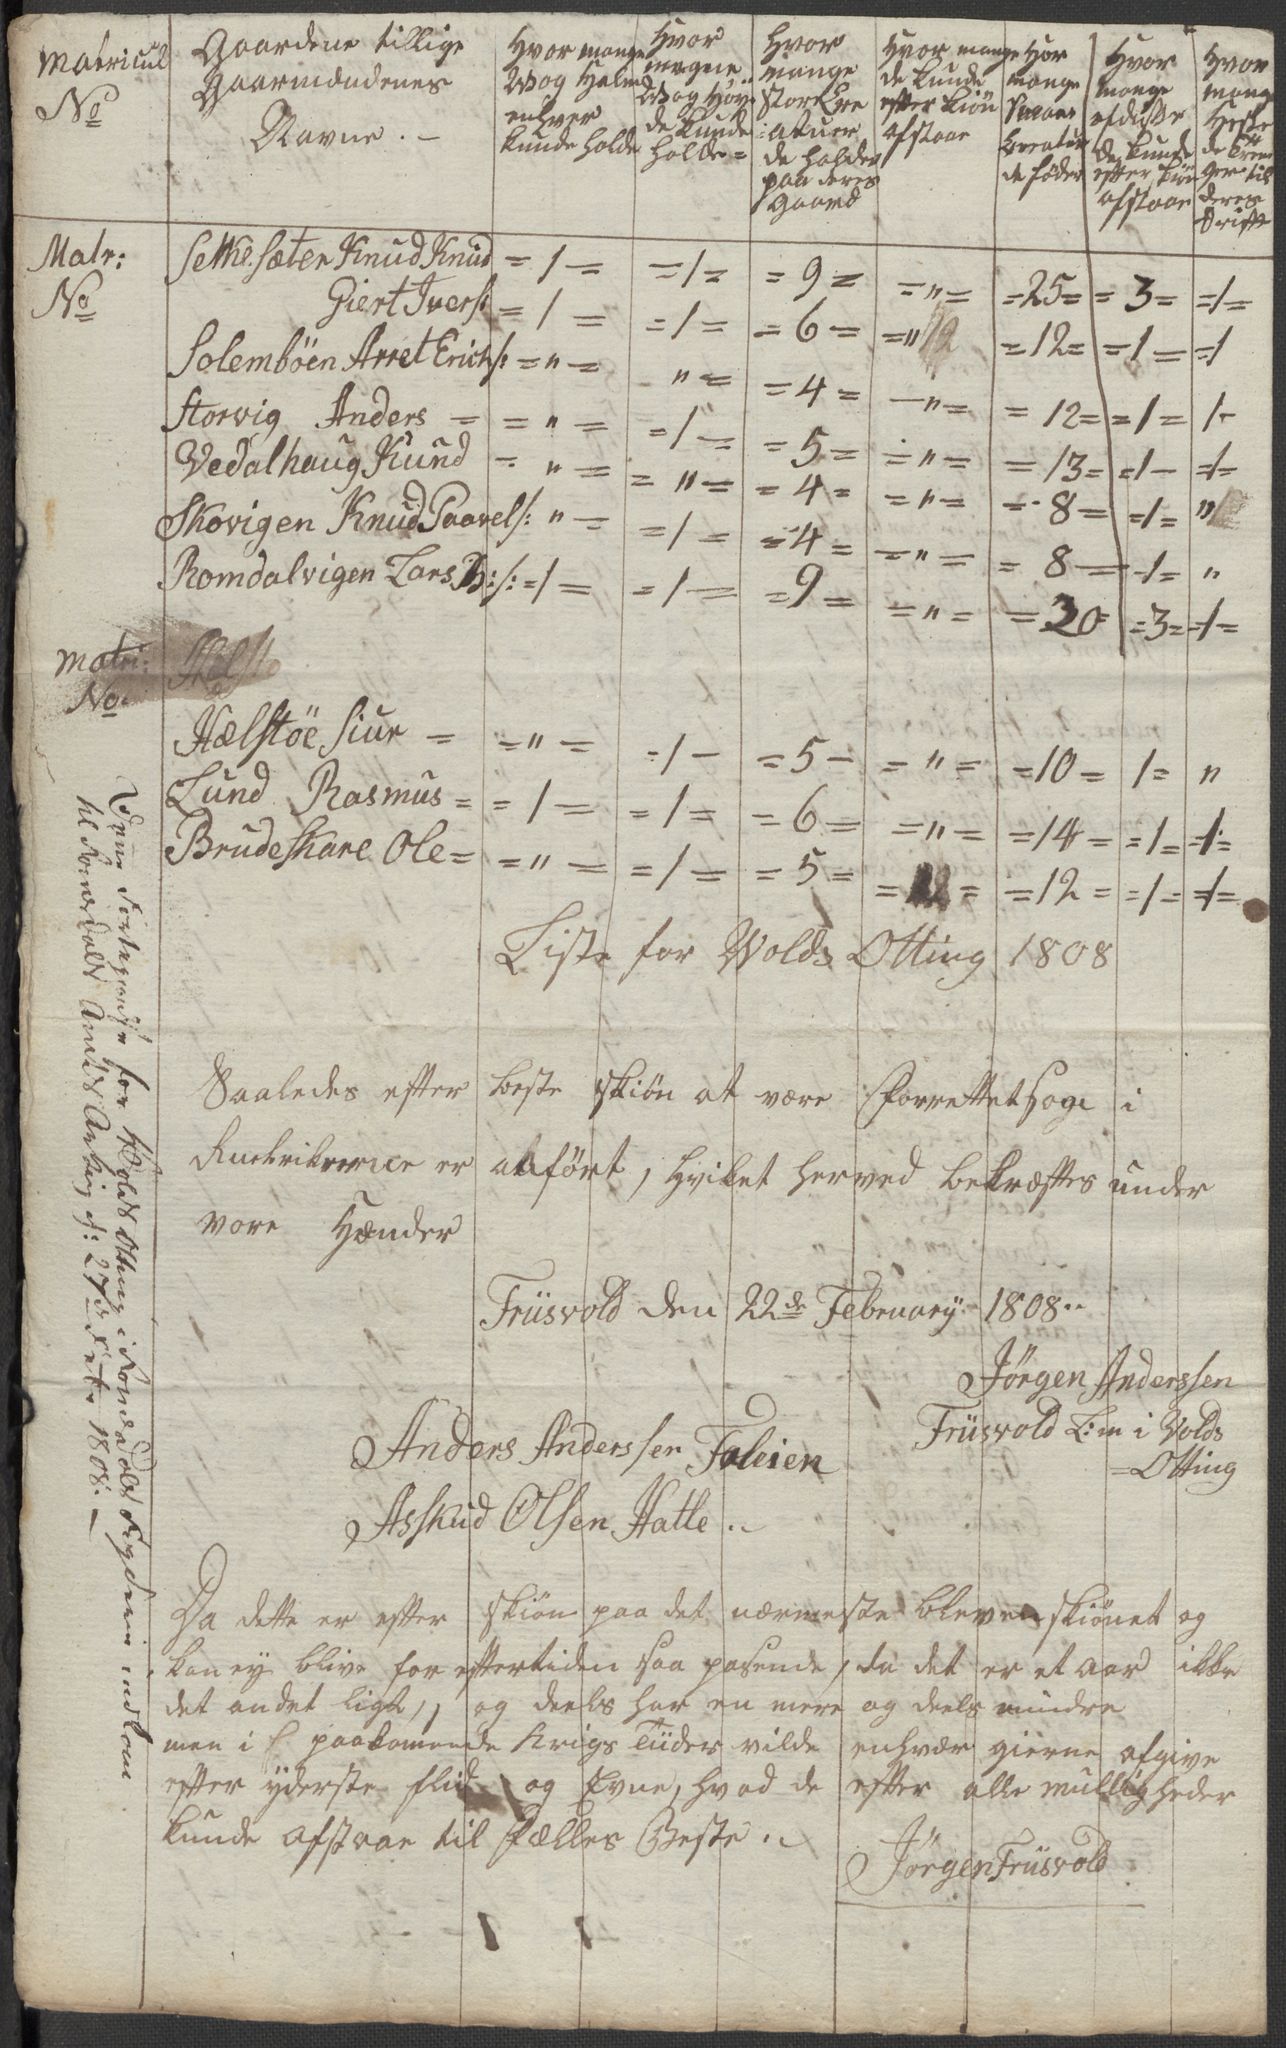 Matricul No | Gaardene tillige Gaarmændenes Navne .- | Hvor mange Wog Halm enhver kunde holde | Hvor megne Wog Höy de kunde holde = | Hvor mange Stor Cre:atuer de holder paa deres Gaard | Hvor mange de kunde efter skiön afstaae | Hvor mange Smaae Creatur de föder | Hvor mange af disse de kunde efter skiön afstaae | Hvor mange Heste de trenger til deres Drift
Matr: No | Setthesæter Knud Knud | =1= | =1= | =9= | =„= | =25= | =3= | =1=
Giert Ivers: | =1= | =1= | =6= | =„ | =12= | =1= | =1
Solembõen Arret Erichs: | =„= | „= | =4= | =„= | =12= | =1= | 1-
Storvig Anders = | =„= | =1= | =5= | =„= | =13= | =1- | =1=
Vedalhaug Knud | =„= | =„= | =4= | =„= | =8= | =1= | „
Skovigen Knud Paavels: | „= | =1= | =4= | =„= | =8= | =1= | „
Romdalvigen Lars :s: | =1= | =1= | =9= | =„= | =20= | =3= | =1=
Matri: No.
Hælstöe Siur = | =„= | =1- | =5- | =„= | =10= | 1= | „
Lund Rasmus = | =1= | =1= | =6= | =„= | =14= | =1= | =1=
Brudeskare Ole = | =„= | =1= | =5= | = = | =12= | =1= | =1=
Liste for Wolds Otting 1808
Saaledes efter beste skiön at være i
er anfört, hvilket herved bekræftes under
vore Hænder
Früsvold den 22de February 1808..
Jörgen Anderssen
Früsvold L:m i Volds
=Otting
Anders Anderssen Foleien
Asskud Olsen Hatle ..
Da dette er efter skiön paa det nærmeste bleven skiönet og
kan ey blive for eftertiden saa pasende, da det er et aar ikke
det andet ligt,, og deels har en mere og deels mindre
men i paakomende Krigs Tiider vilde enhvær gierne afgive
efter yderste flid og Evne, hvad de efter alle mulligheder
kunde afstaae til Fælles Beste ..
Jörgen Früsvold
Denne Fortegnelse for Wolds Otting i Romsdals Fogderie indkom
til Romsdals Amts d: 27de 1808. -